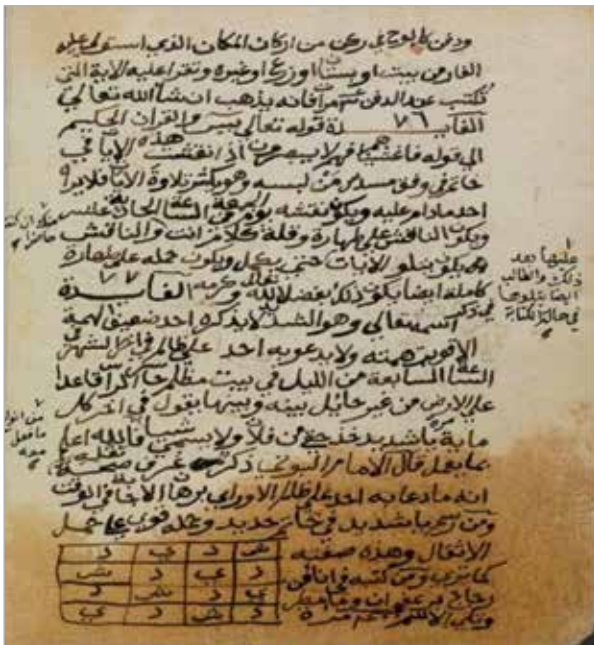 ودفن كل لوح في ركن من اركان المكان الذي استولى عليه
الفار من بيت او بستان او زرع او غيره وتقرا عليه الاية التي
كتبت عند الدفن مرات فانه يذهب ان شا الله تعالي
الفايـدة ٧٦ قوله تعالي يس والقران الحكيم
الي قوله فاغشيناهم فهم لا يبصرون اذا نقشت هذه الايات في
خاتم في وفق مسدس من لبسه وهو يكثر تلاوة الايات فلا يراه
احد مادام عليه ويكون نقشه يوم الجمعة في الساعة
ويكون الناقش على طهارة وقلة كلام انت والناقش
يتلو الايات حتي يكمل ويكون حمله على طهارة
كاملة ايضا يكون ذلك بفضل الله تعالى وكرمه الفايدة ٧٧
في ذكر اسمه تعالي وهو الشديد لا يذكره احد ضعيف الهمة
الا قويت همته ولا يدعو به احد على ظالم في اخر الشهر في
الساعة السابعة من الليل في بيت مظلم حاسر الراس قاعدا
علي الارض من غير حايل بينه وبينها يقول في اخر كل
ماية مرة يا شديد خذ حقي من فلان ولا يسمي شيا فالله اعلم
بما يفعل قال الامام البوني ذكر
انه ما دعا به احد على ظالم الا وراي برهان الاجابة في الوقت
ومن رسم يا شديد في خاتم حديد وحمله قوي علي حمل
الاثقال وهذه صفته
كما تري ومن كتبه في انا من
زجاج بزعفران وما
ش د ي د
د ي د ش
ي د ش د
د ش د ي
عليها بعد
ذلك والطالب
ايضا يتلوها
في حالة الكتابة
ما فعل
معه